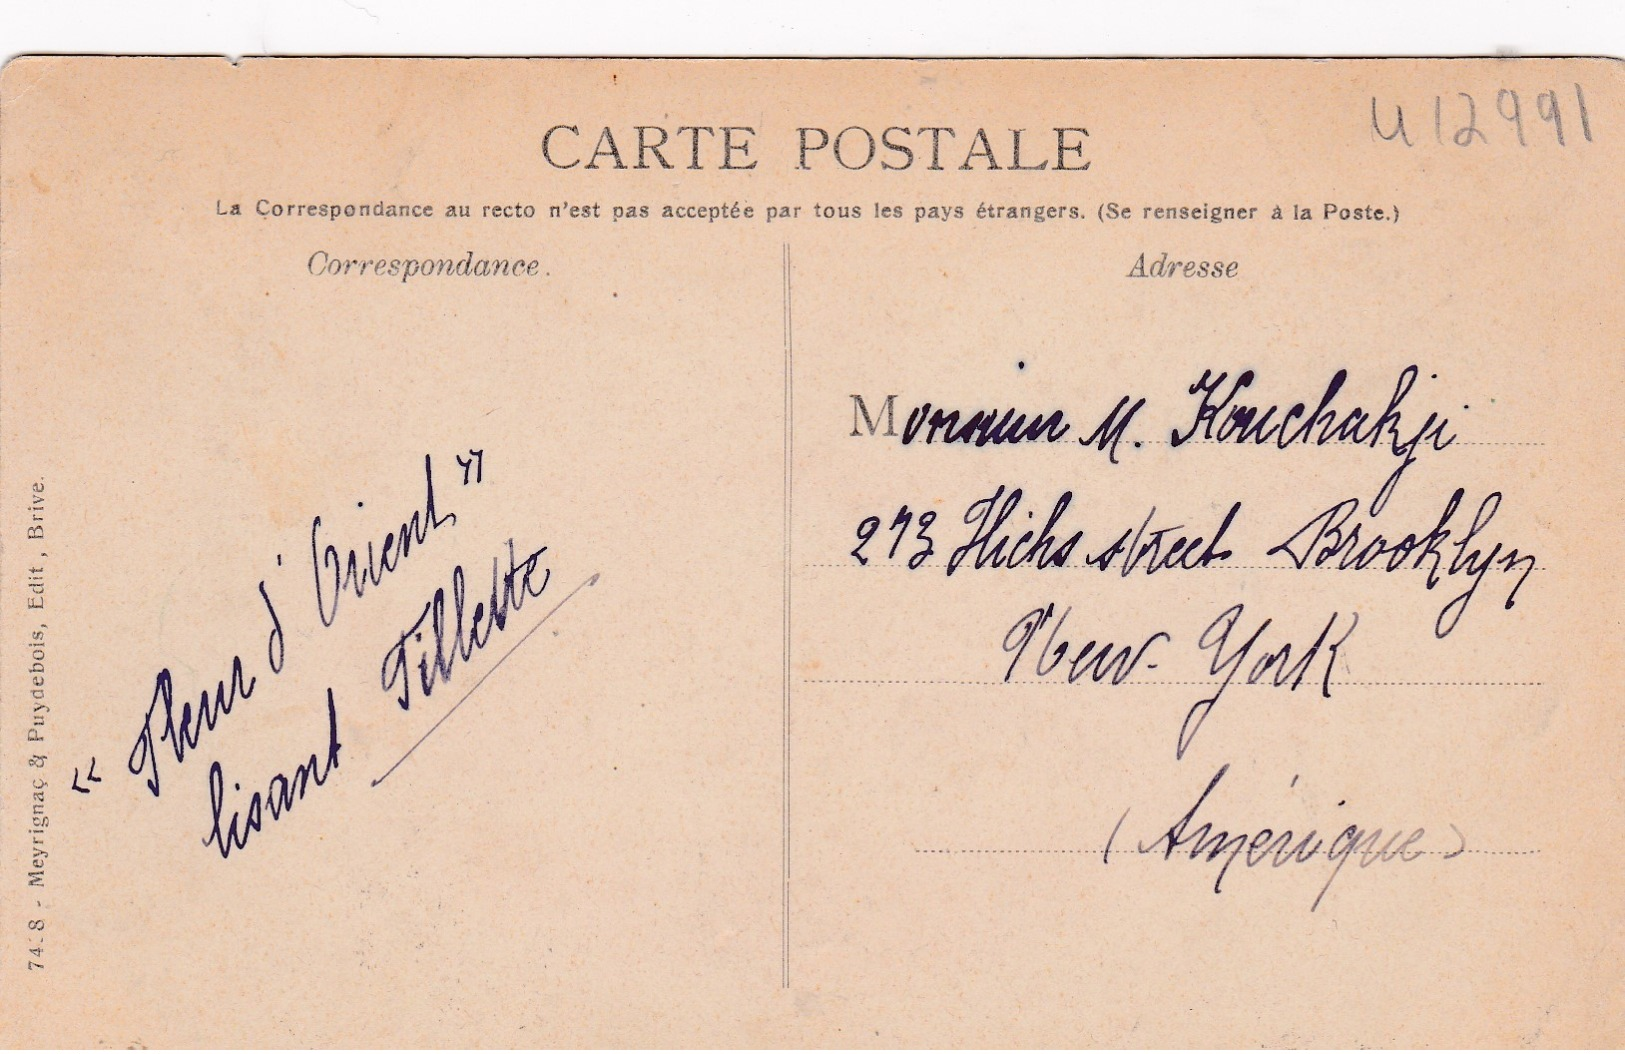 U12991
CARTE POSTALE
La Correspondance au recto n'est pas acceptée par tous les pays étrangers. (Se renseigner à la Poste.)
Correspondance.
« Fleur d'Orient »
lisant Fillette
74-8 - Meyrignaç & Puydebois, Edit, Brive.
Adresse
Monsieur M. Kouchakji
273 Hichs street Brooklyn
New-York
(Amérique)